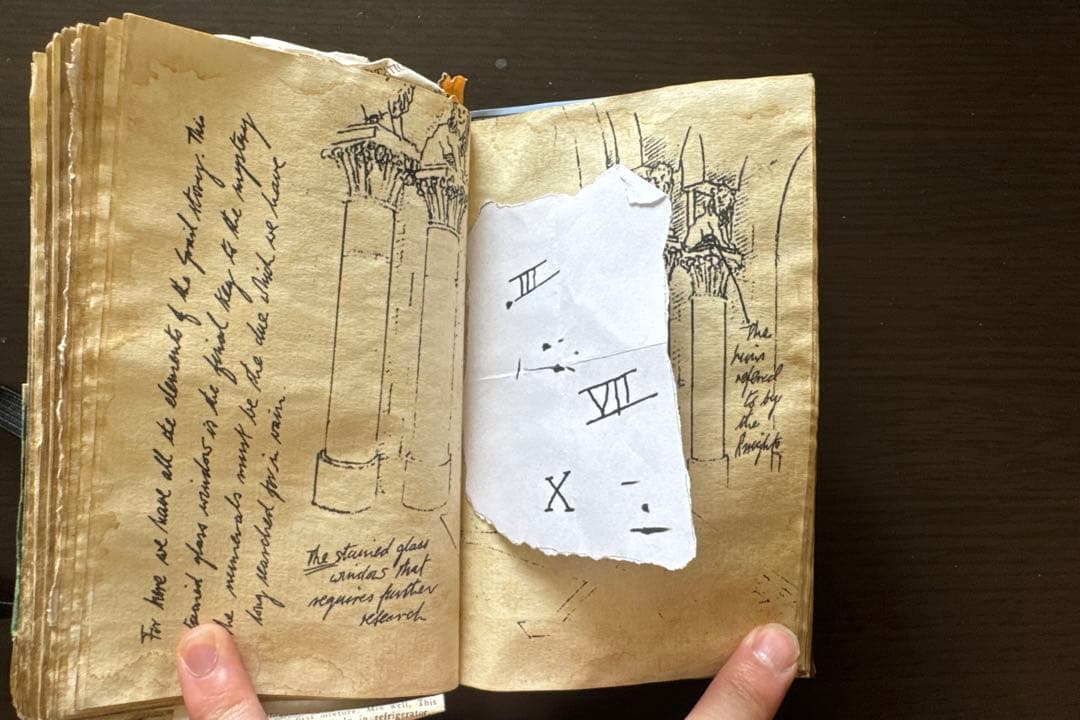 For here we have all the elements of the grail story. This
stained glass window is the final key to the mystery
the numerals must be the clue which we have
long searched for in vain.
The stained glass
window that
requires further
research
III
VII
X
The
ruins
refered
to by
the
Knights
first mixture. Mix well. This
in refrigerator